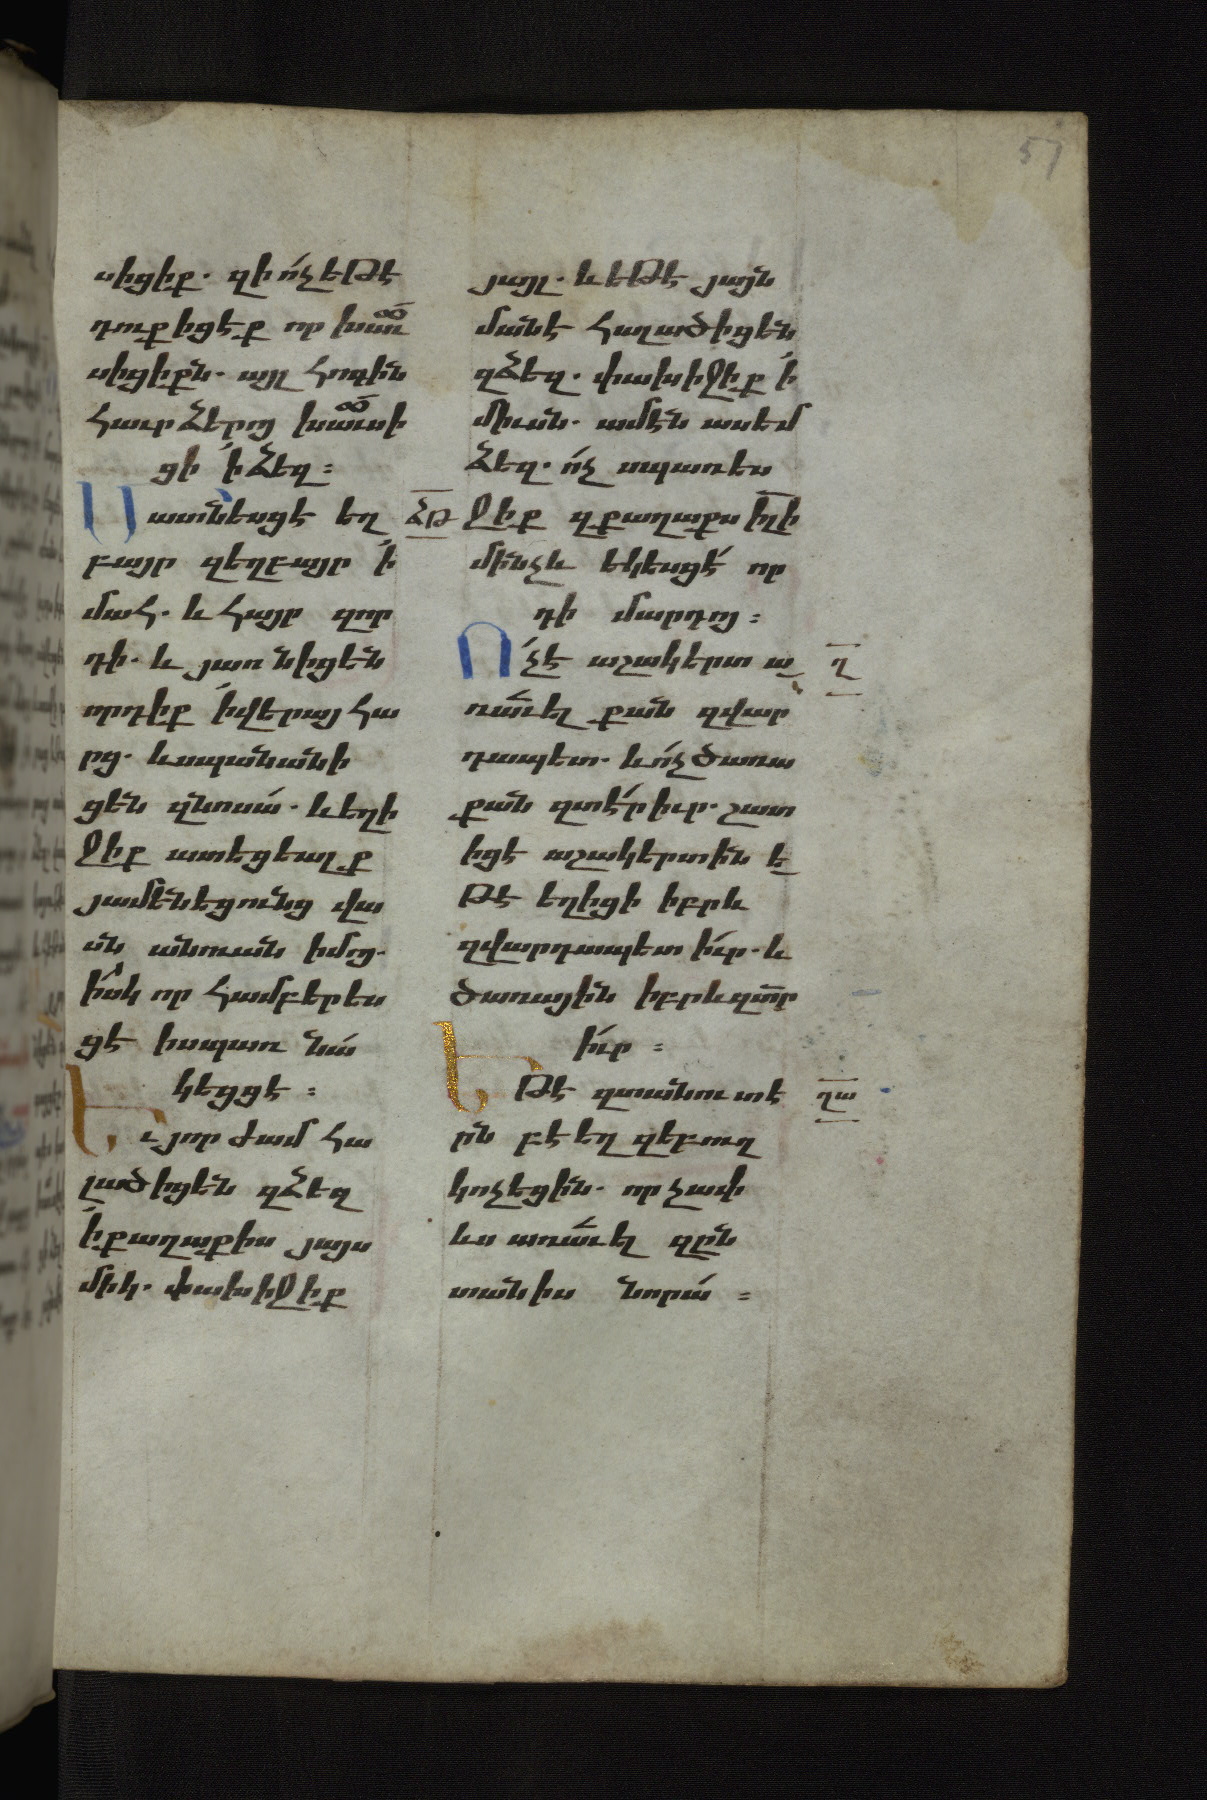 57
սիցիք. զի ո՛չ եթէ
դուք իցէք որ խաւ
սիցիքն. այլ հոգին
հաւր ձերոյ խաւսի
ցի ՛ի ձեզ։
Մատնեսցէ եղ
բայր զեղբայր ՛ի
մահ. և հայր զոր
դի. և յառնիցեն
որդիք ՛ի վերայ հա
րց. և սպանանի
ցեն զնոսա՛. և եղի
ջիք ատեցեալք
յամենեցունց վա
սն անուան իմոյ.
իսկ որ համբերես
ցէ իսպառ նա՛
կեցցէ։
Եւ յորժամ հա
լածիցեն զձեզ
՛ի քաղաքիս յայս
միկ. փախիջիք
ձթ
յայլ. և եթէ յայն
մանէ հալածիցեն
զձեզ. փախիջիք ՛ի
միւսն. ամէն ասեմ
ձեզ. ո՛չ սպառես
ջիք զքաղաքս իլի
մինչև եկեսցէ՛ որ
դի մարդոյ։
Ո՛չ է աշակերտ ա
ռաւել քան զվար
դապետ. և ո՛չ ծառա
քան զտէ՛ր իւր. շատ
իցէ աշակերտին ե
թէ եղիցի իբրև
զվարդապետ իւր. և
ծառային իբրև զտր
իւր։
Եթէ զտանուտէ
րն բէեղզեբուղ
կոչեցին. որչափ
ևս առաւել զըն
տանիս նորա՛։
ղ
ղա